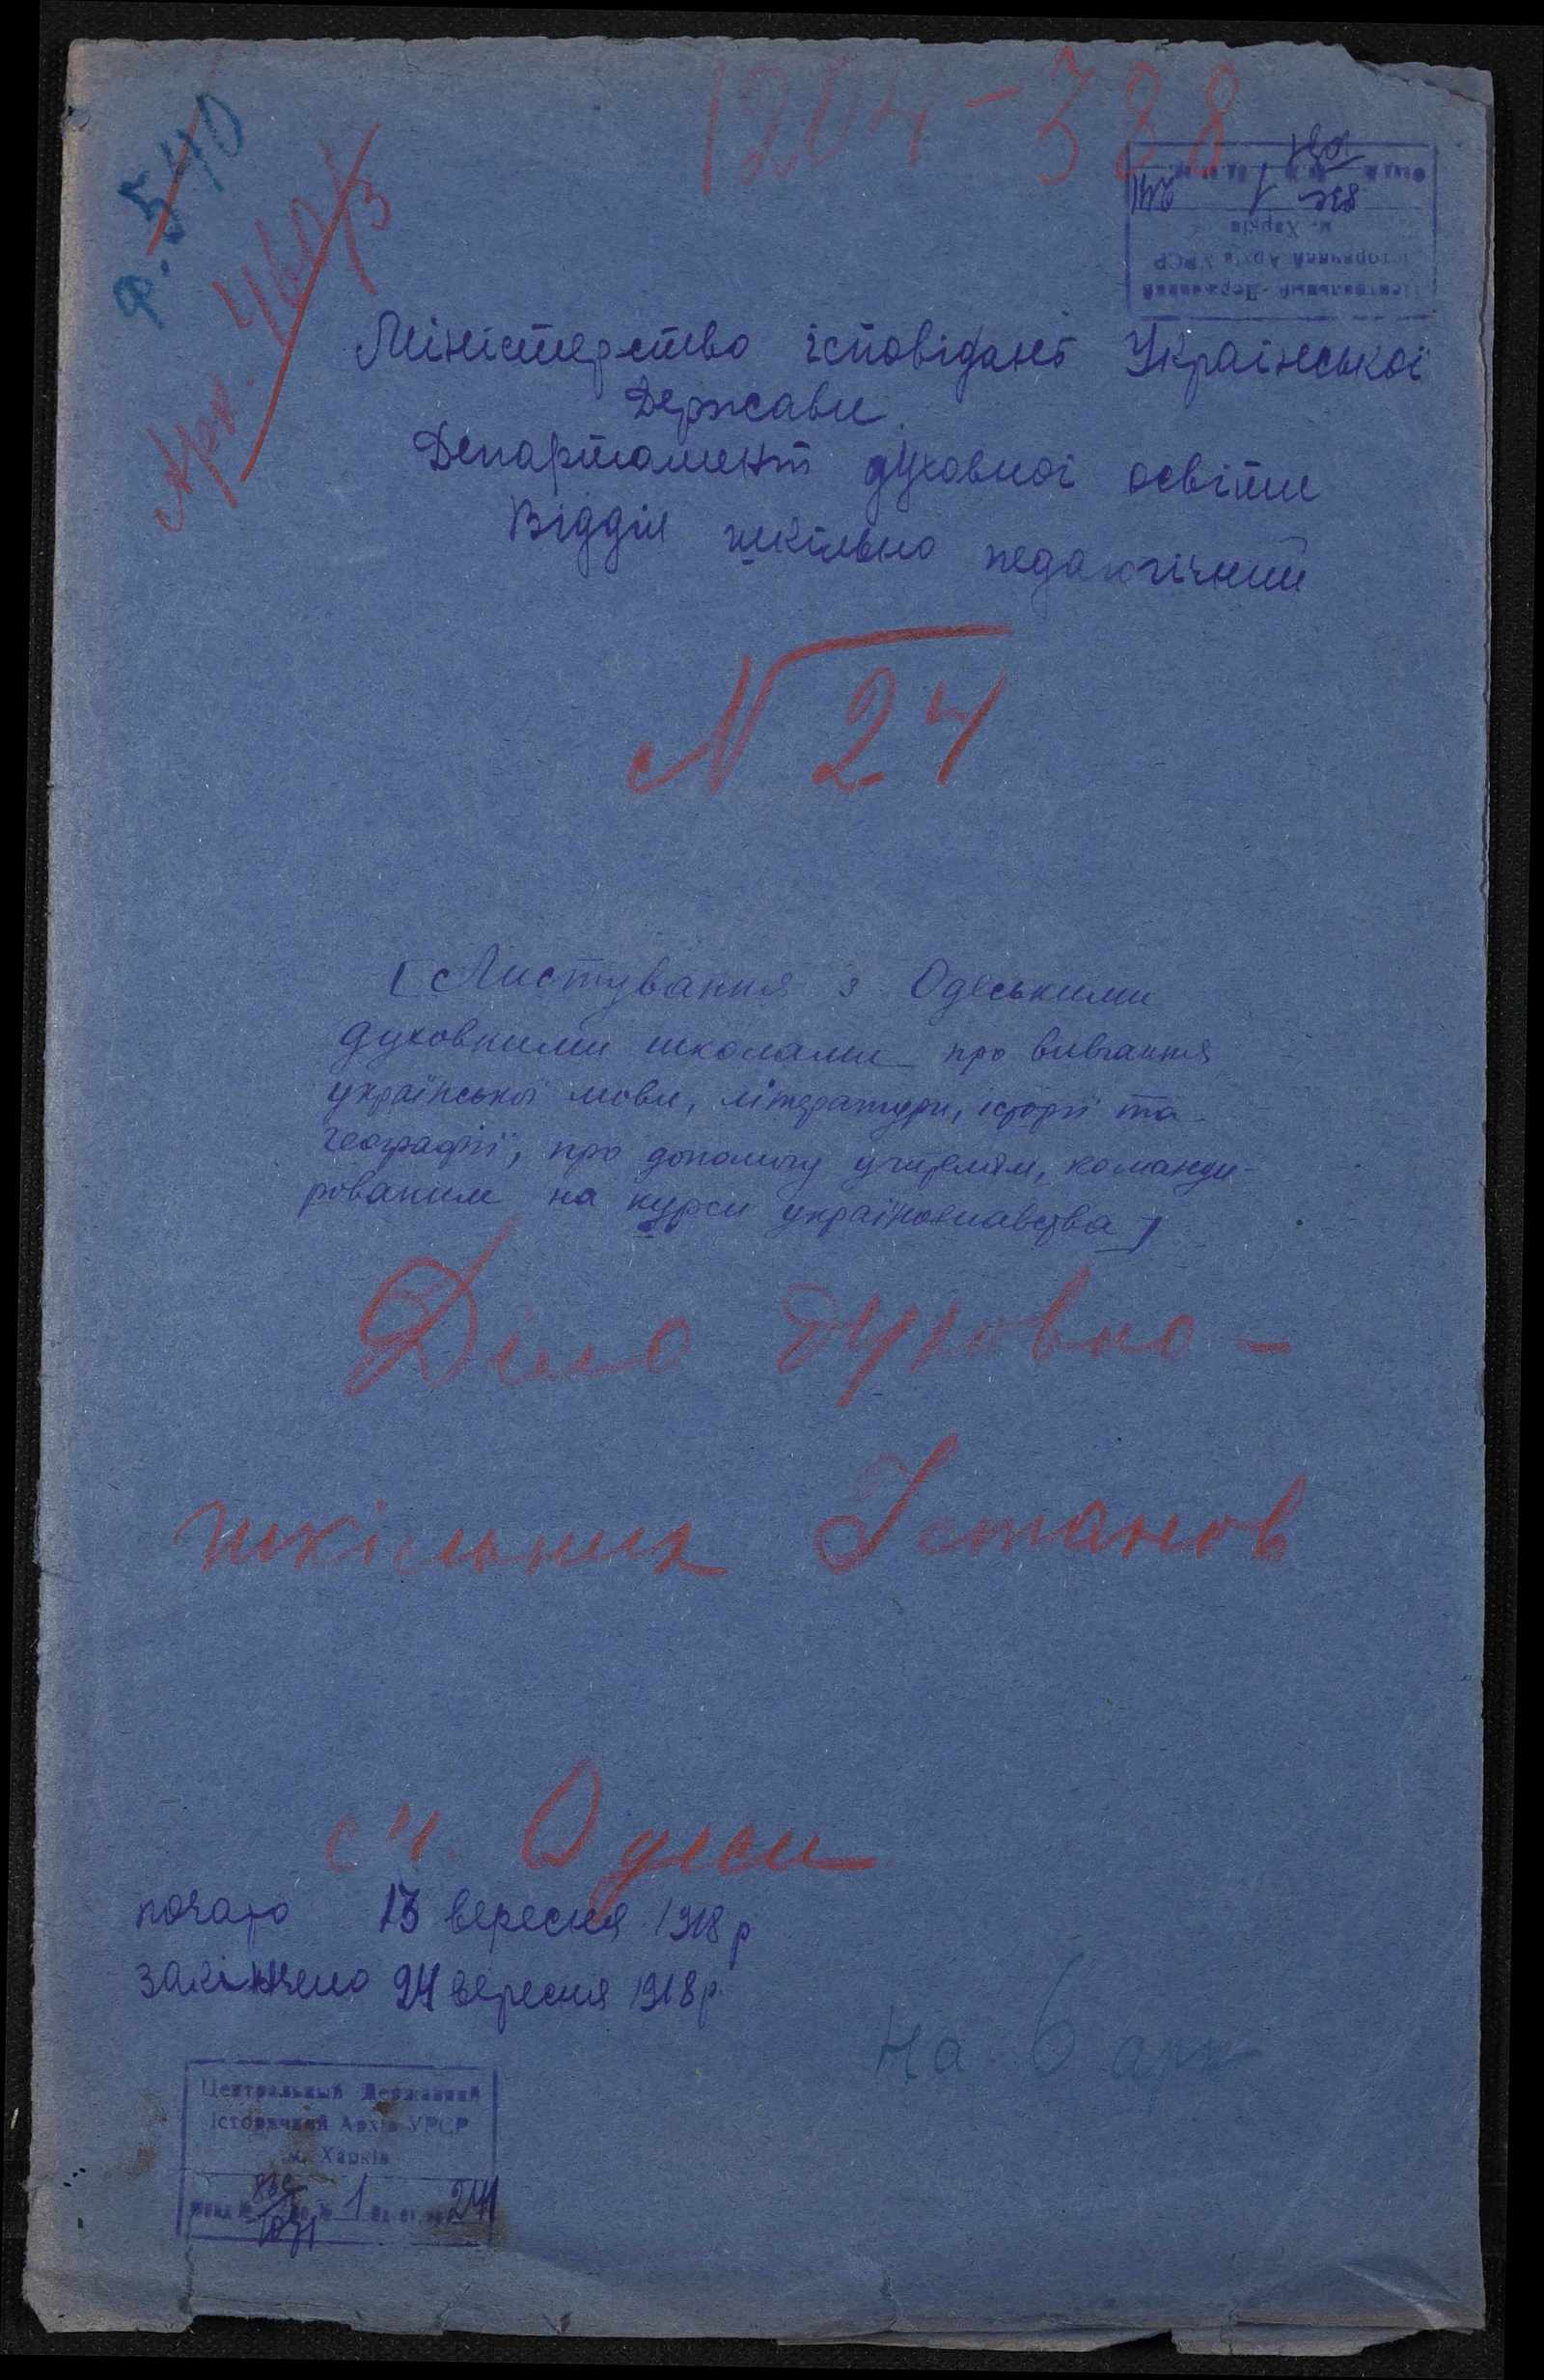 1204-388
Ф. 540
Арк. 460/3
Міністерство ісповідань Української
Держави.
Департамент духовної освіти
Відділ шкільно педагогічний
№ 24
[Листування з Одеськими
духовними школами про вивчання
української мови, літератури, історії та
географії, про допомогу учителям, команди-
рованим на курси українознавства]
Діло духовно-
шкільних Установ
м. Одеси
почато 13 вересня 1918 р
закінчено 24 вересня 1918 р.
на 6 арк
Центральный Державний
Історичний Архів УРСР
м. Харків
Фонд № 1071 оп. № 1 од. зб. № 241
Центральный Державний
Історичний Архів УРСР
м. Харків